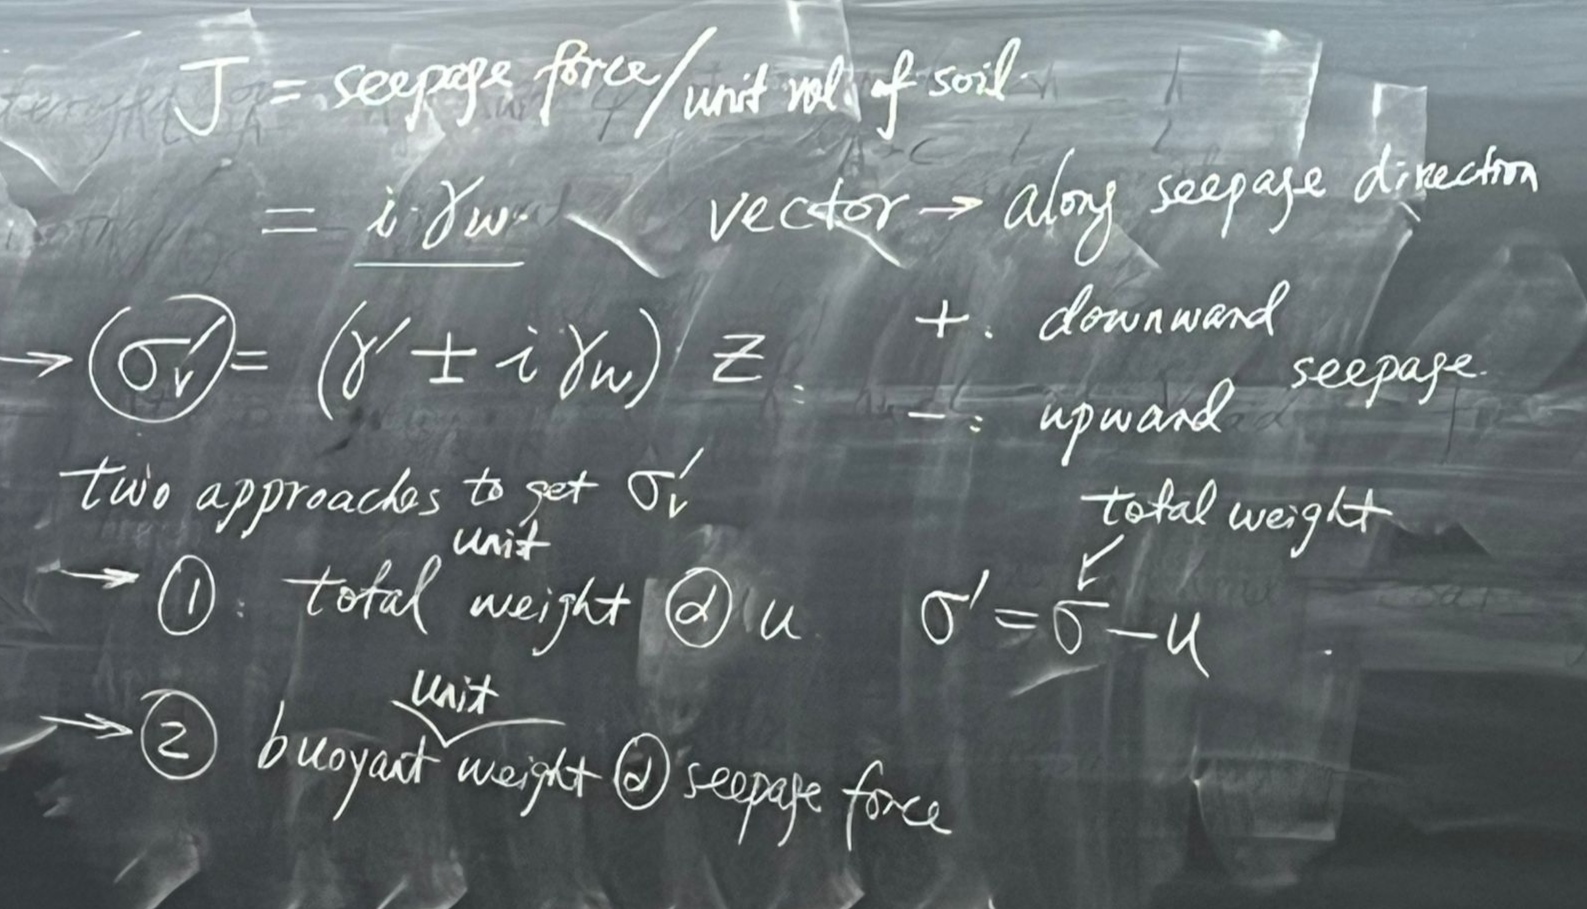 J = seepage force/unit vol. of soil
= i γw vector → along seepage direction
→ σv' = (γ' ± i γw) z : +. downward
seepage.
-: upward
two approaches to get σv'
total weight
→ ①. total unit weight ⓓ u σ' = σ - u
→ ② buoyant unit weight ⓓ seepage force